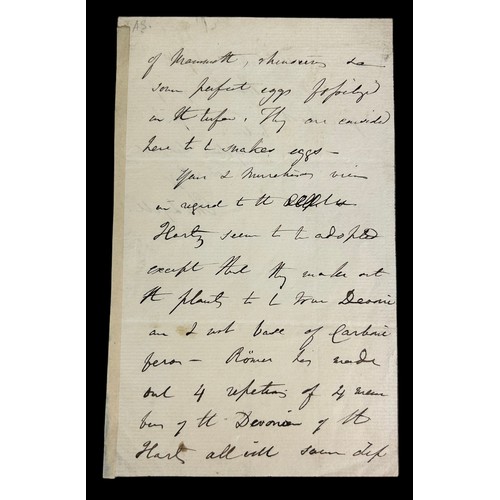 A3.
of Mammoth, rhinoceros &c
some perfect eggs fossilized
in the tufa. They are considd
here to be snakes eggs –
Your & Murchisons view
in regard to the
Hartz seem to be adopted
except that they make out
the plants to be true Devonian
and not base of Carboni
ferous – Römer has made
out 4 repetitions of 4 mem
bers of the Devonian of the
Hartz all with same dip